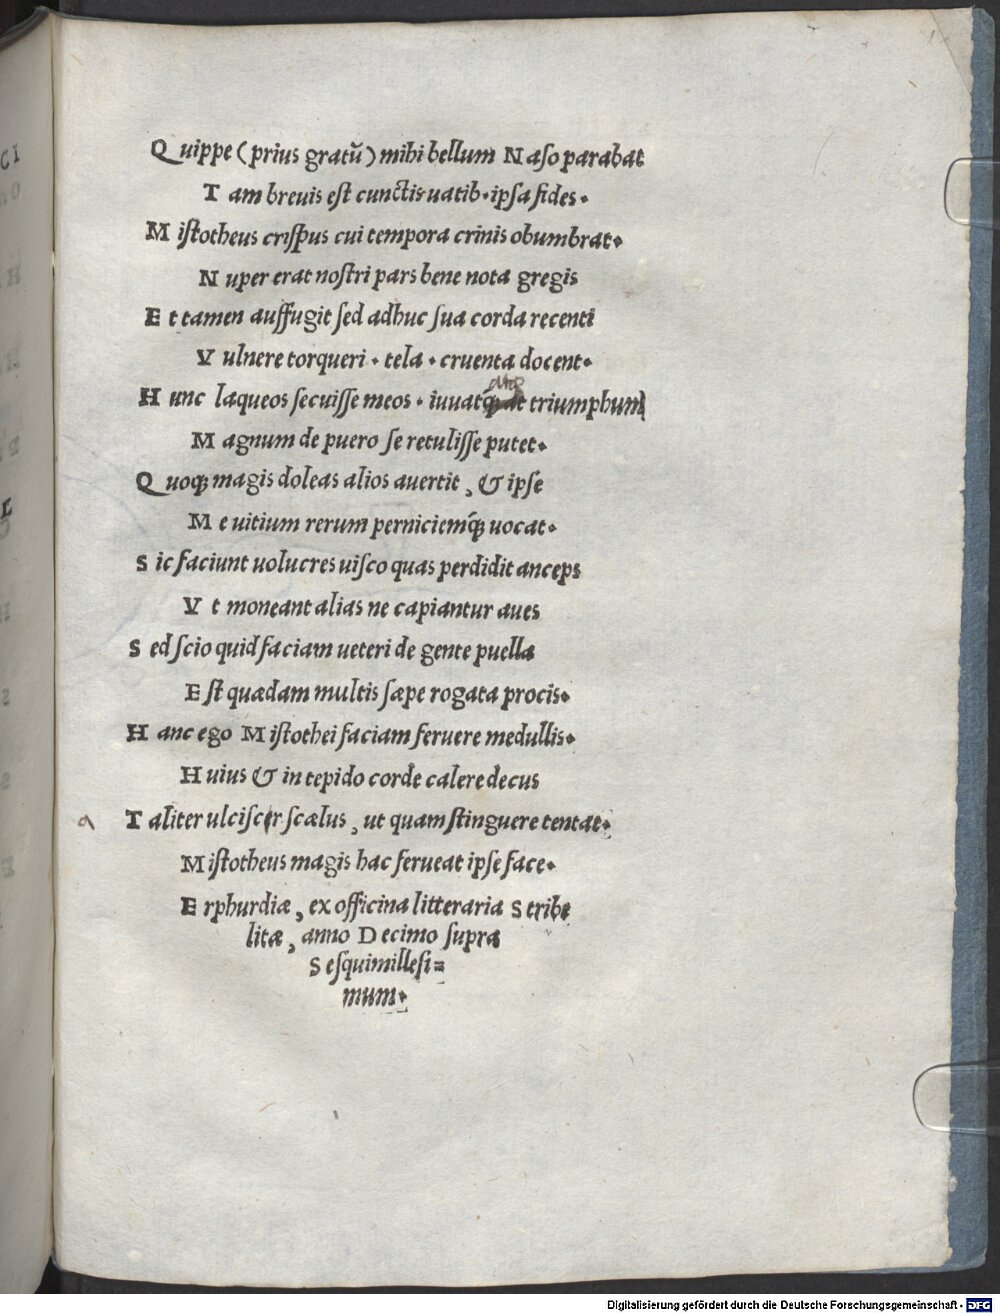 Quippe (prius gratū) mihi bellum Naso parabat
Tam breuis est cunctis uatib. ipsa fides.
Mistotheus crispus cui tempora crinis obumbrat.
Nuper erat nostri pars bene nota gregis
Et tamen auffugit sed adhuc sua corda recenti
Vulnere torqueri. tela. cruenta docent.
Hunc laqueos secuisse meos. iuuat triumphum
Magnum de puero se retulisse putet.
Quoqꝫ magis doleas alios auertit, & ipse
Me uitium rerum perniciemqꝫ uocat.
Sic faciunt uolucres uisco quas perdidit anceps
Vt moneant alias ne capiantur aues
Sed scio quid faciam ueteri de gente puella
Est quædam multis sæpe rogata procis.
Hanc ego Mistothei faciam feruere medullis.
Huius & in tepido corde calere decus
a Taliter ulciscer scælus, ut quam stinguere tentat.
Mistotheus magis hac ferueat ipse face.
Erphurdiæ, ex officina litteraria Stribe
litæ, anno Decimo supra
Sesquimillesi=
mum.
Digitalisierung gefördert durch die Deutsche Forschungsgemeinschaft - DFG